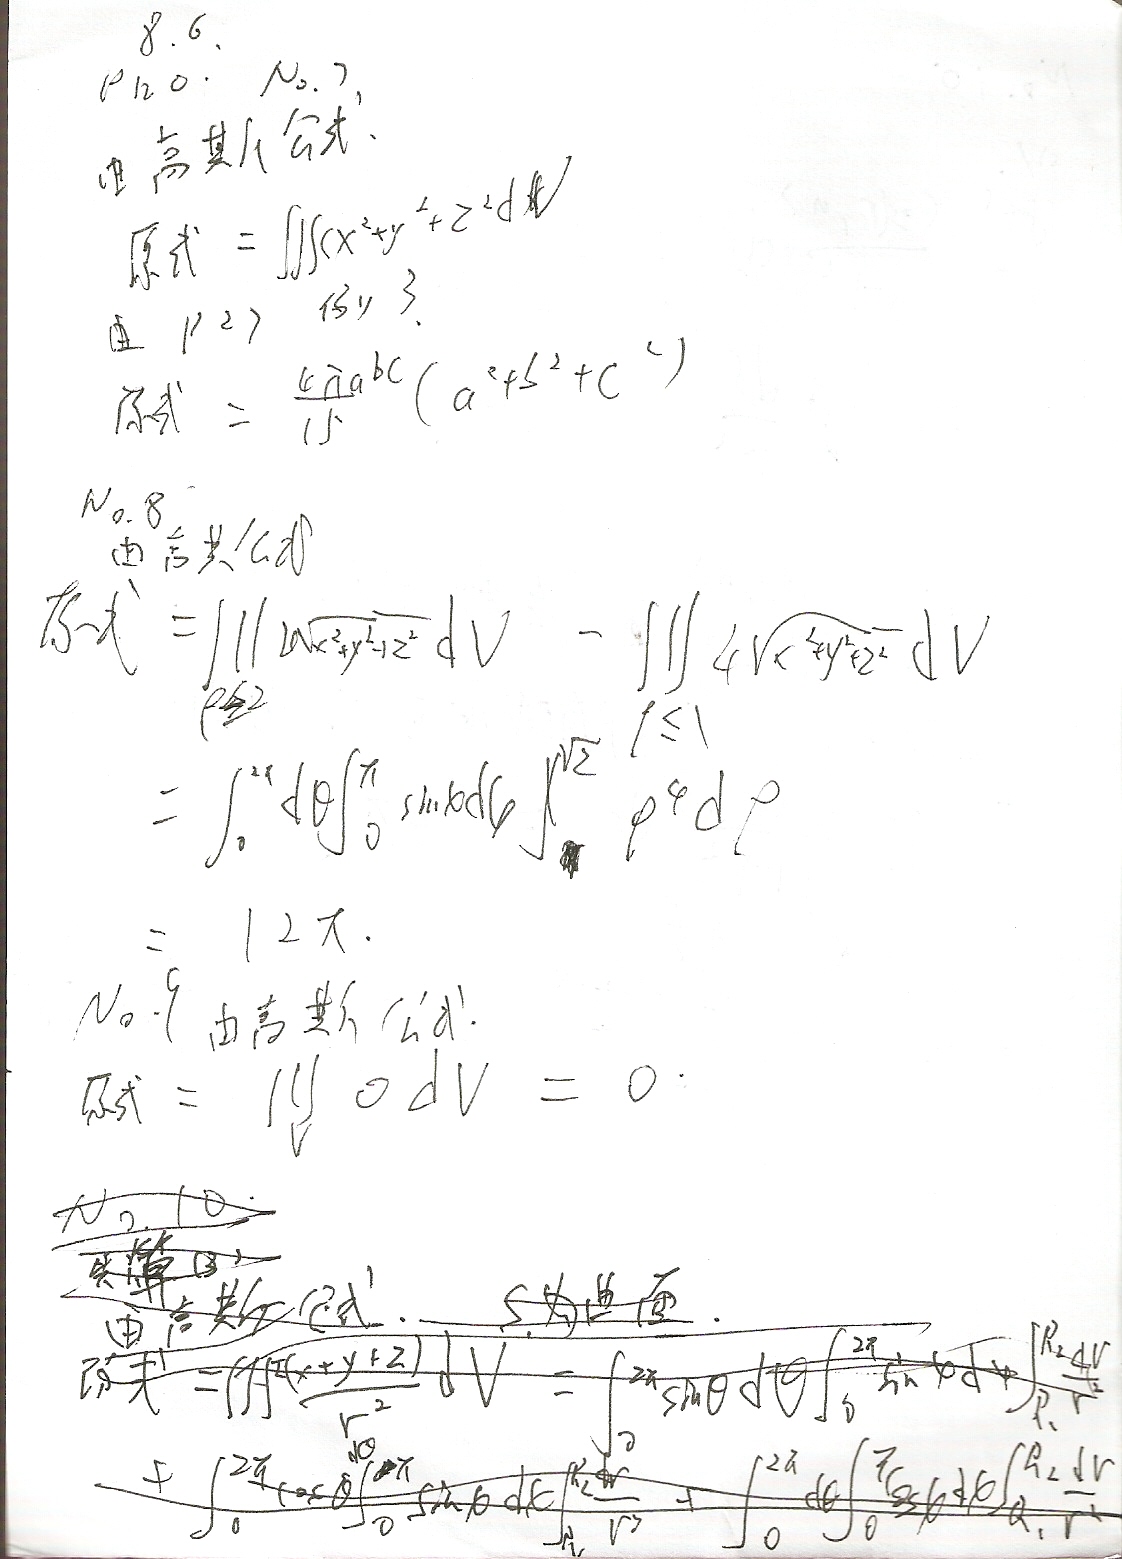 8.6.
P120. No.7.
由高斯公式.
原式 = ∭(x²+y²+z²dV
由 P27 例3.
原式 = 4πabc/15 (a²+b²+c²)
No.8
由高斯公式
原式 = ∭ρ≤2 √x²+y²+z² dV - ∭ρ≤1 4√x²+y²+z² dV
= ∫₀^2π dθ ∫₀^π sinφdφ ∫^√2 ρ⁴dρ
= 12π.
No.9 由高斯公式.
原式 = ∭V 0dV = 0.
No.10.
由高斯公式. S为曲面.
原式 = ∭ (x+y+z)/r² dV = ∫₀^2π sinθdθ ∫₀^2π sinφdφ ∫R₁^R₂ dr/r²
+ ∫₀^2π cosθ ∫₀^π sinφdφ ∫R₁^R₂ dr/r² + ∫₀^2π dθ ∫₀^π cosφdφ ∫R₁^R₂ dr/r²